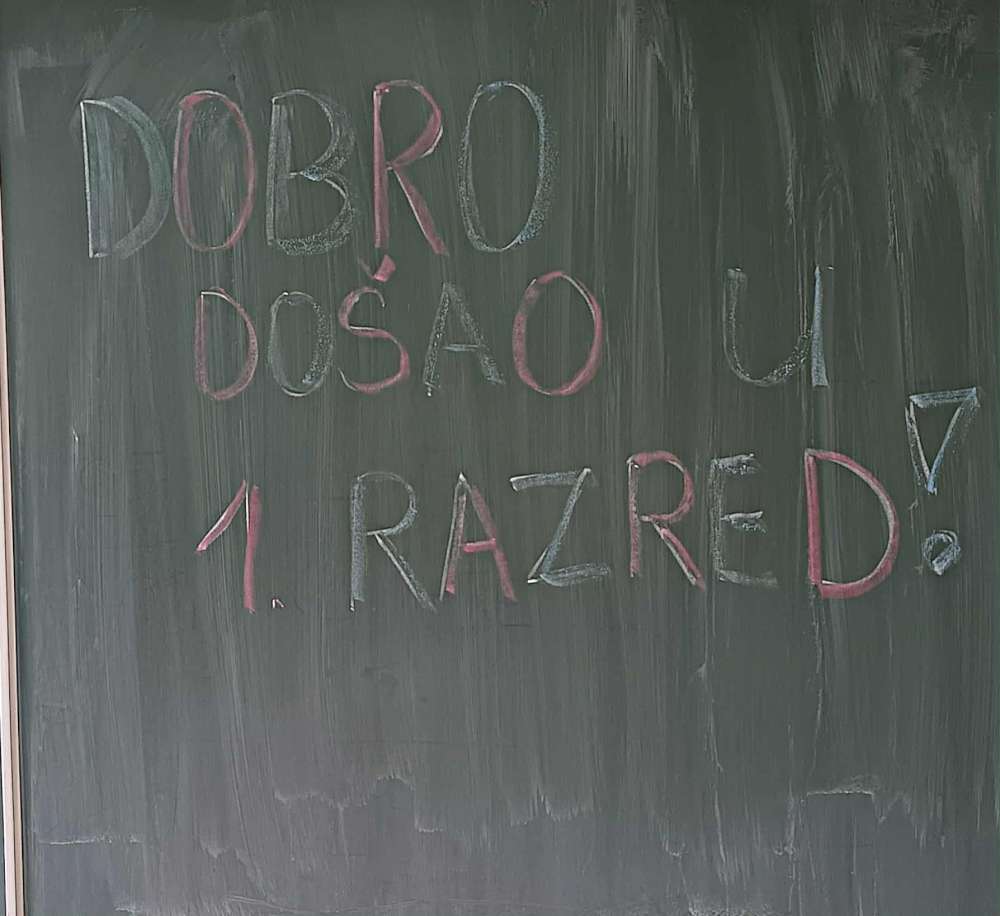 DOBRO
DOŠAO U
1. RAZRED!